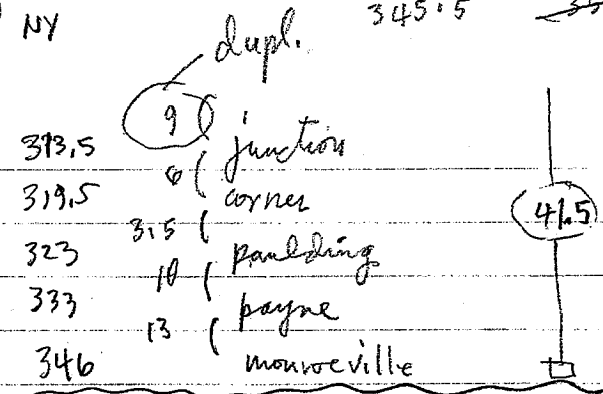 NY 345.5
dupl.
9
313.5 junction
6
319.5 corner 41.5
3.5
323 paulding
10
333 payne
13
346 monroeville